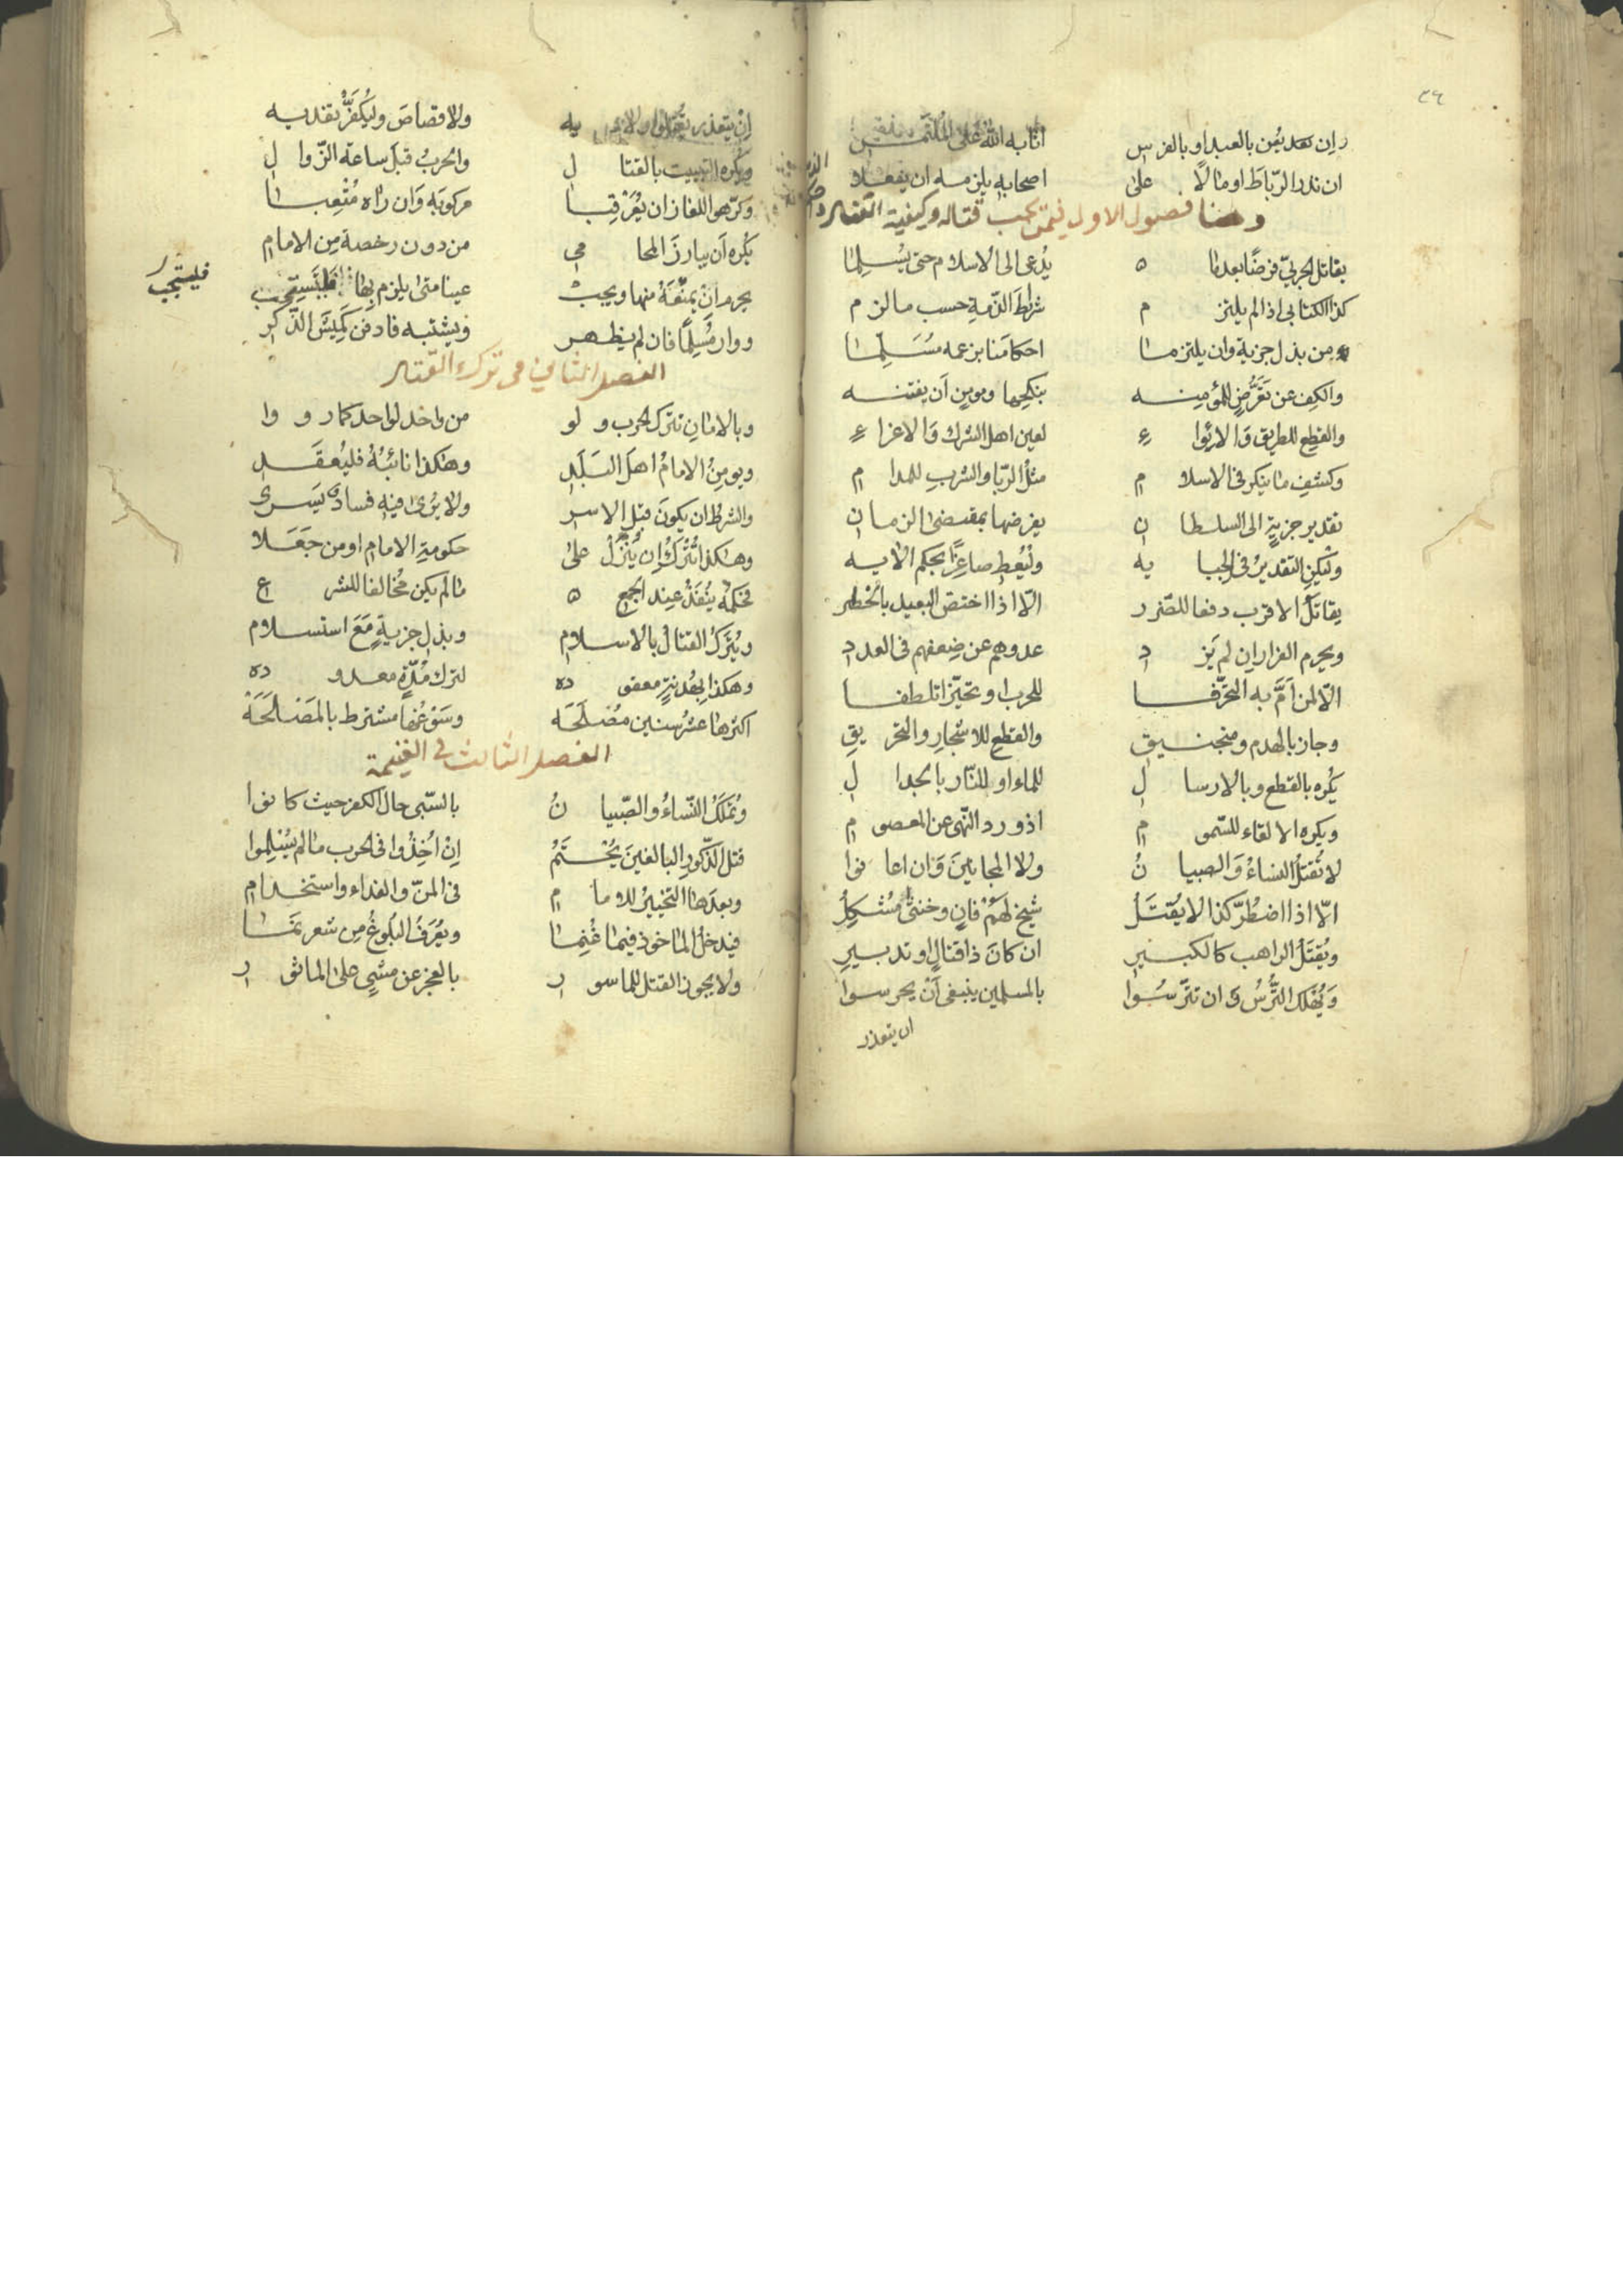 ٣٦
وان يعن بالعبد او بالفرس اثابه الله على الملتمس
ان نذر الرّباط او مالا على اصحابه يلزمه ان يفعلا
وهنا فصول الاول فيمن يجب قتاله وكيفية القتال
يقاتل الحربيّ فرضًا بعدما يُدعى الى الاسلام حتى يُسْلِمَا
كذا الكتابي اذا لم يلتزم شرائط الذّمةِ حسب ما لزم
من بذل جزية وان يلتزما احكامَنا بزعمه مُسَلِّمَا
والكف عن تَعَرُّضٍ للمؤمنه ينكحها ومومنٍ أن يفتنه
والقطع للطريق وَالايوآء لعين اهل الشرك وَالاغراء
وكشفِ ما ينكر في الاسلام مثلُ الرّبا والشربِ للمدام
تقدير جزيةٍ الى السلطان يفرضها بمقتضى الزمان
وليكنِ التقديرُ في الجبايه وليُعطِ صاغِرًا بحكم الايه
يقاتَلُ الاقرب دفعا للضّرر الّا اذا اختصّ البعيد بالخطر
ويحرم الفرار إن لم يَزد عدوهم عن ضِعفهم في العدد
الّا لمن اَمَّ به التحرّفا للحرب او تحيّزا تلطفا
وجاز بالهدم ومنجنيق والقطع للاشجار والتحريقِ
يُكره بالقطع وبالارسال للماء او للنّار بالجدال
ويكره الالقاء للسّموم اذ ورد النّهى عن المعصوم
لا تُقتلُ النساءُ وَالصبيانُ ولا المجانينَ وَان اعانوا
الّا اذا اضطُرَّ كذا لا يُقتَلُ شيخ لهُمْ فانٍ وخنثى مُشْكِلُ
ويُقتَلُ الراهب كالكبير ان كانَ ذا قتالٍ او تدبيرِ
وَيُهْلَك التُّرْسُ وَان تترّسُوا بالمسلمين ينبغى أنْ يحرسوا
ان يتعذر
إنْ يتعذر ولاديه ولا قصاصَ وليُكفَّرْ بفديه
ويكره التبييت بالقتال والحربُ قبلَ ساعة الزّوال
وكرّهوا للغاز ان يُعَرْقِبا مركوبَه وَان راه مُتْعِبا
يُكره أن يبارزَ المحامي من دون رخصة مِن الامام
يحرم ان يمنَعَهُ منها ويجبْ عينا متى يلزم بها فليستجب
فليستجب
ووارِ مُسلِمًا فان لم يظهر ويشتبه فادفن كَمِيشَ الذّكر
الفصل الثاني في ترك القتال
وبالامانِ تترك الحرب ولو من واحد لواحد كما رووا
ويومِنُ الامامُ اهلَ البَلَد وهكذا نائبُهُ فليُعقَد
والشرطُ ان يكونَ قبل الاسر ولا يُرى فيه فسادٌ يَسرى
وهكذا تُتْرَكُ إن يُنْزَلْ على حكومةِ الامام او من جَعَلا
فحكمُه يَنْفُذْ عند الجمع ما لم يكن مُخالفا للشرع
ويُتْرَكُ القتالُ بالاسلام وبذل جزيةٍ مَعَ استسلام
وهكذا بهُدنةٍ معقوده لترك مُدّةٍ معدوده
اكثرها عشرُ سنين مُصْلَحَه وسَوْغُهَا مشترط بالمَصْلَحَهْ
الفصل الثالث في الغنيمة
وتُملَكُ النّساءُ والصّبيانُ بالسّبى حال الكفر حيث كانوا
قتل الذّكورِ البالغينَ يُحْتَمُ اِنْ اُخِذُوا في الحرب ما لم يُسْلِموا
وبعدَها التخييرُ للامام في المنّ والفداء واستخدام
فيدخلُ الماخوذ فيما غُنِمَا ويُعْرَفُ البلُوغُ مِن شعر نَمَا
ولا يجوز القتل للماسور بالعجز عن مشيٍ على الماثور